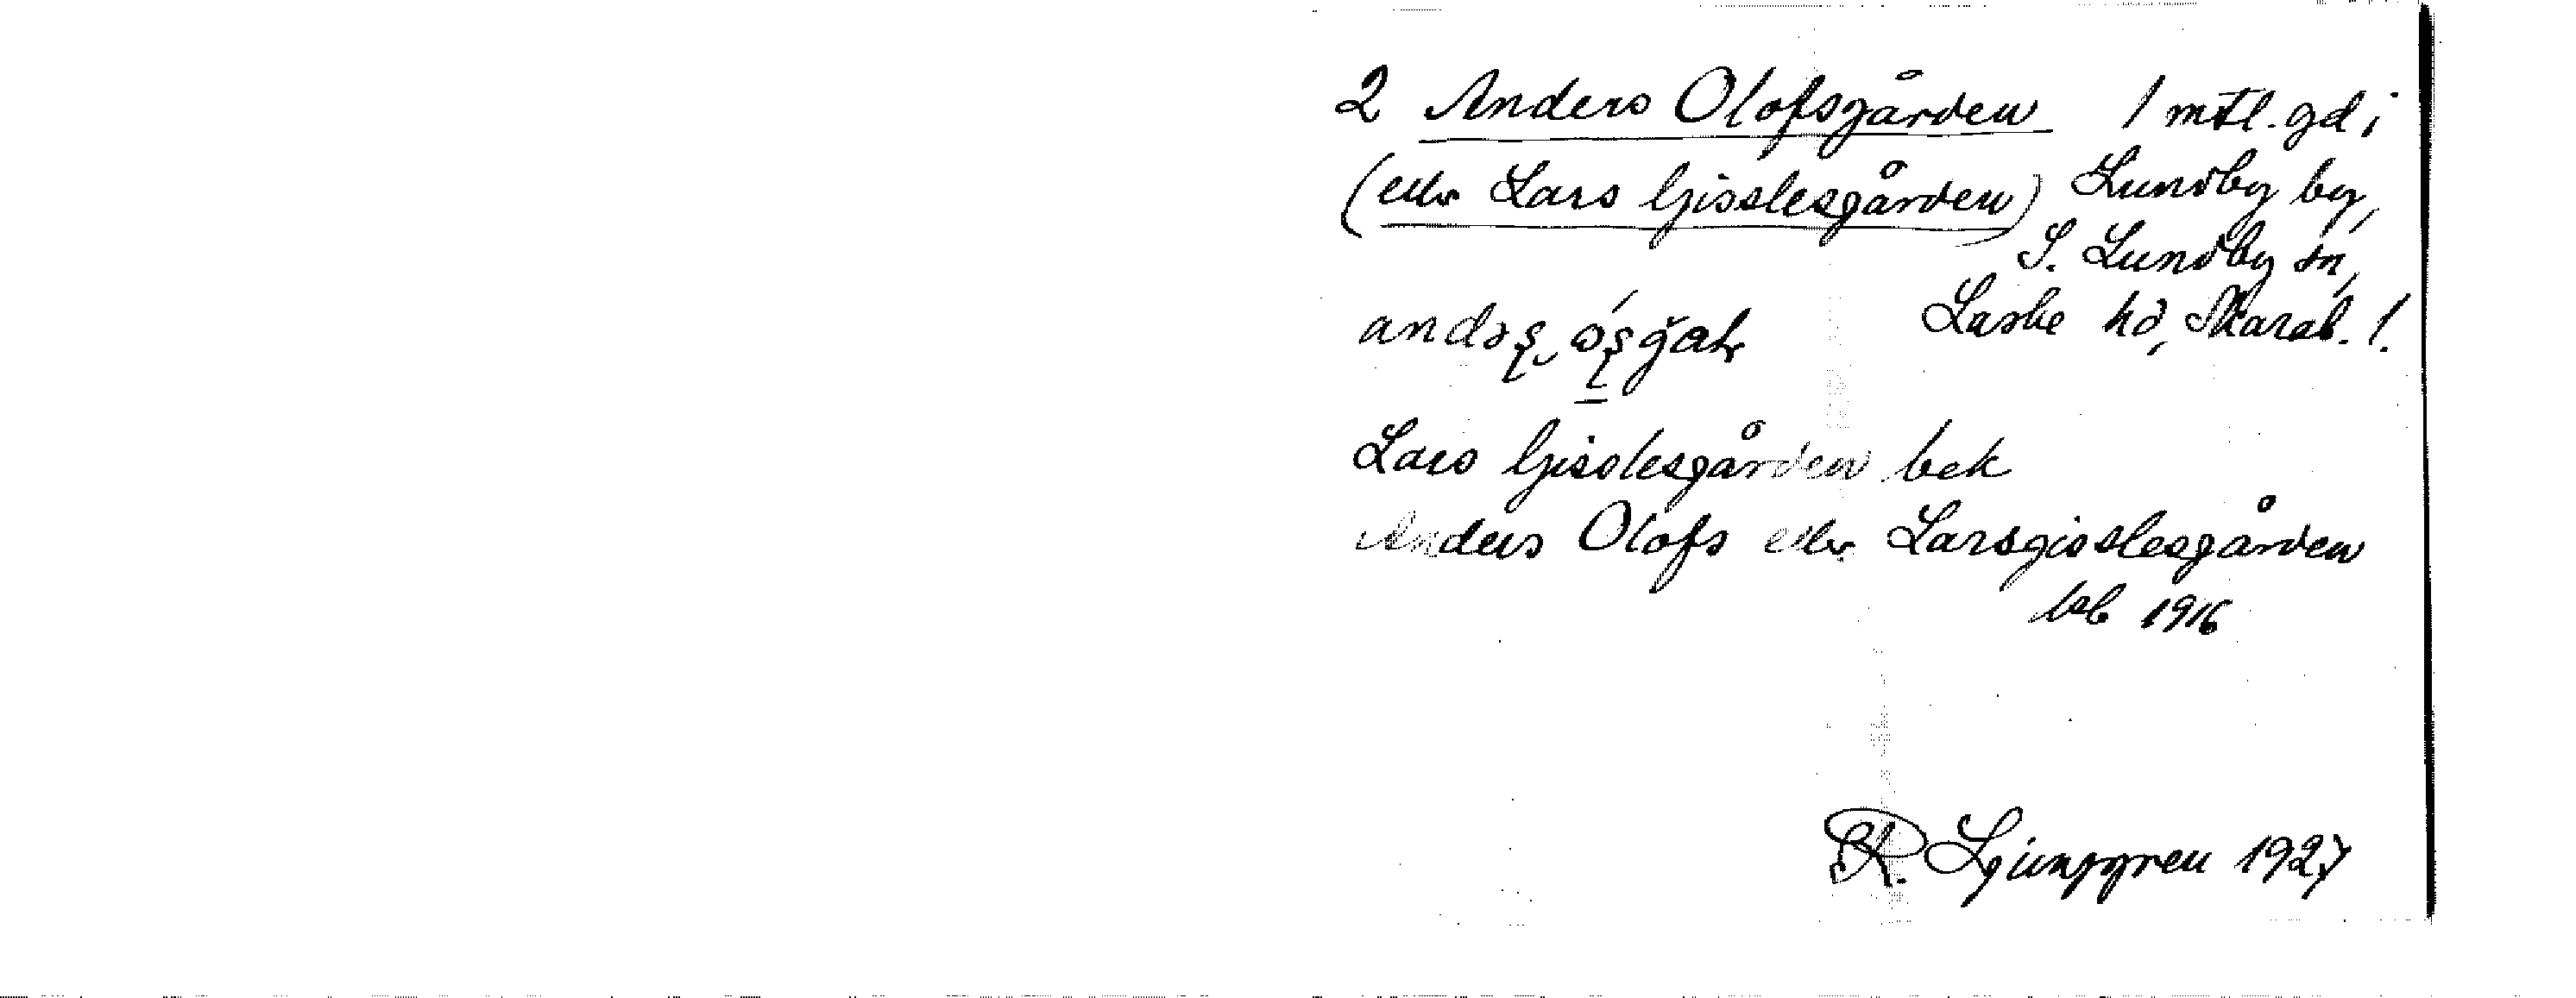 2 Anders Olofsgården 1 mtl. gd i
(eller Lars Gisslesgården) Lundby by,
S. Lundby sn,
Laske hd, Skarab. l.
Lars Gisslesgården bek
Anders Olofs eller Larsgisslesgården
1916
R. Ljunggren 1927